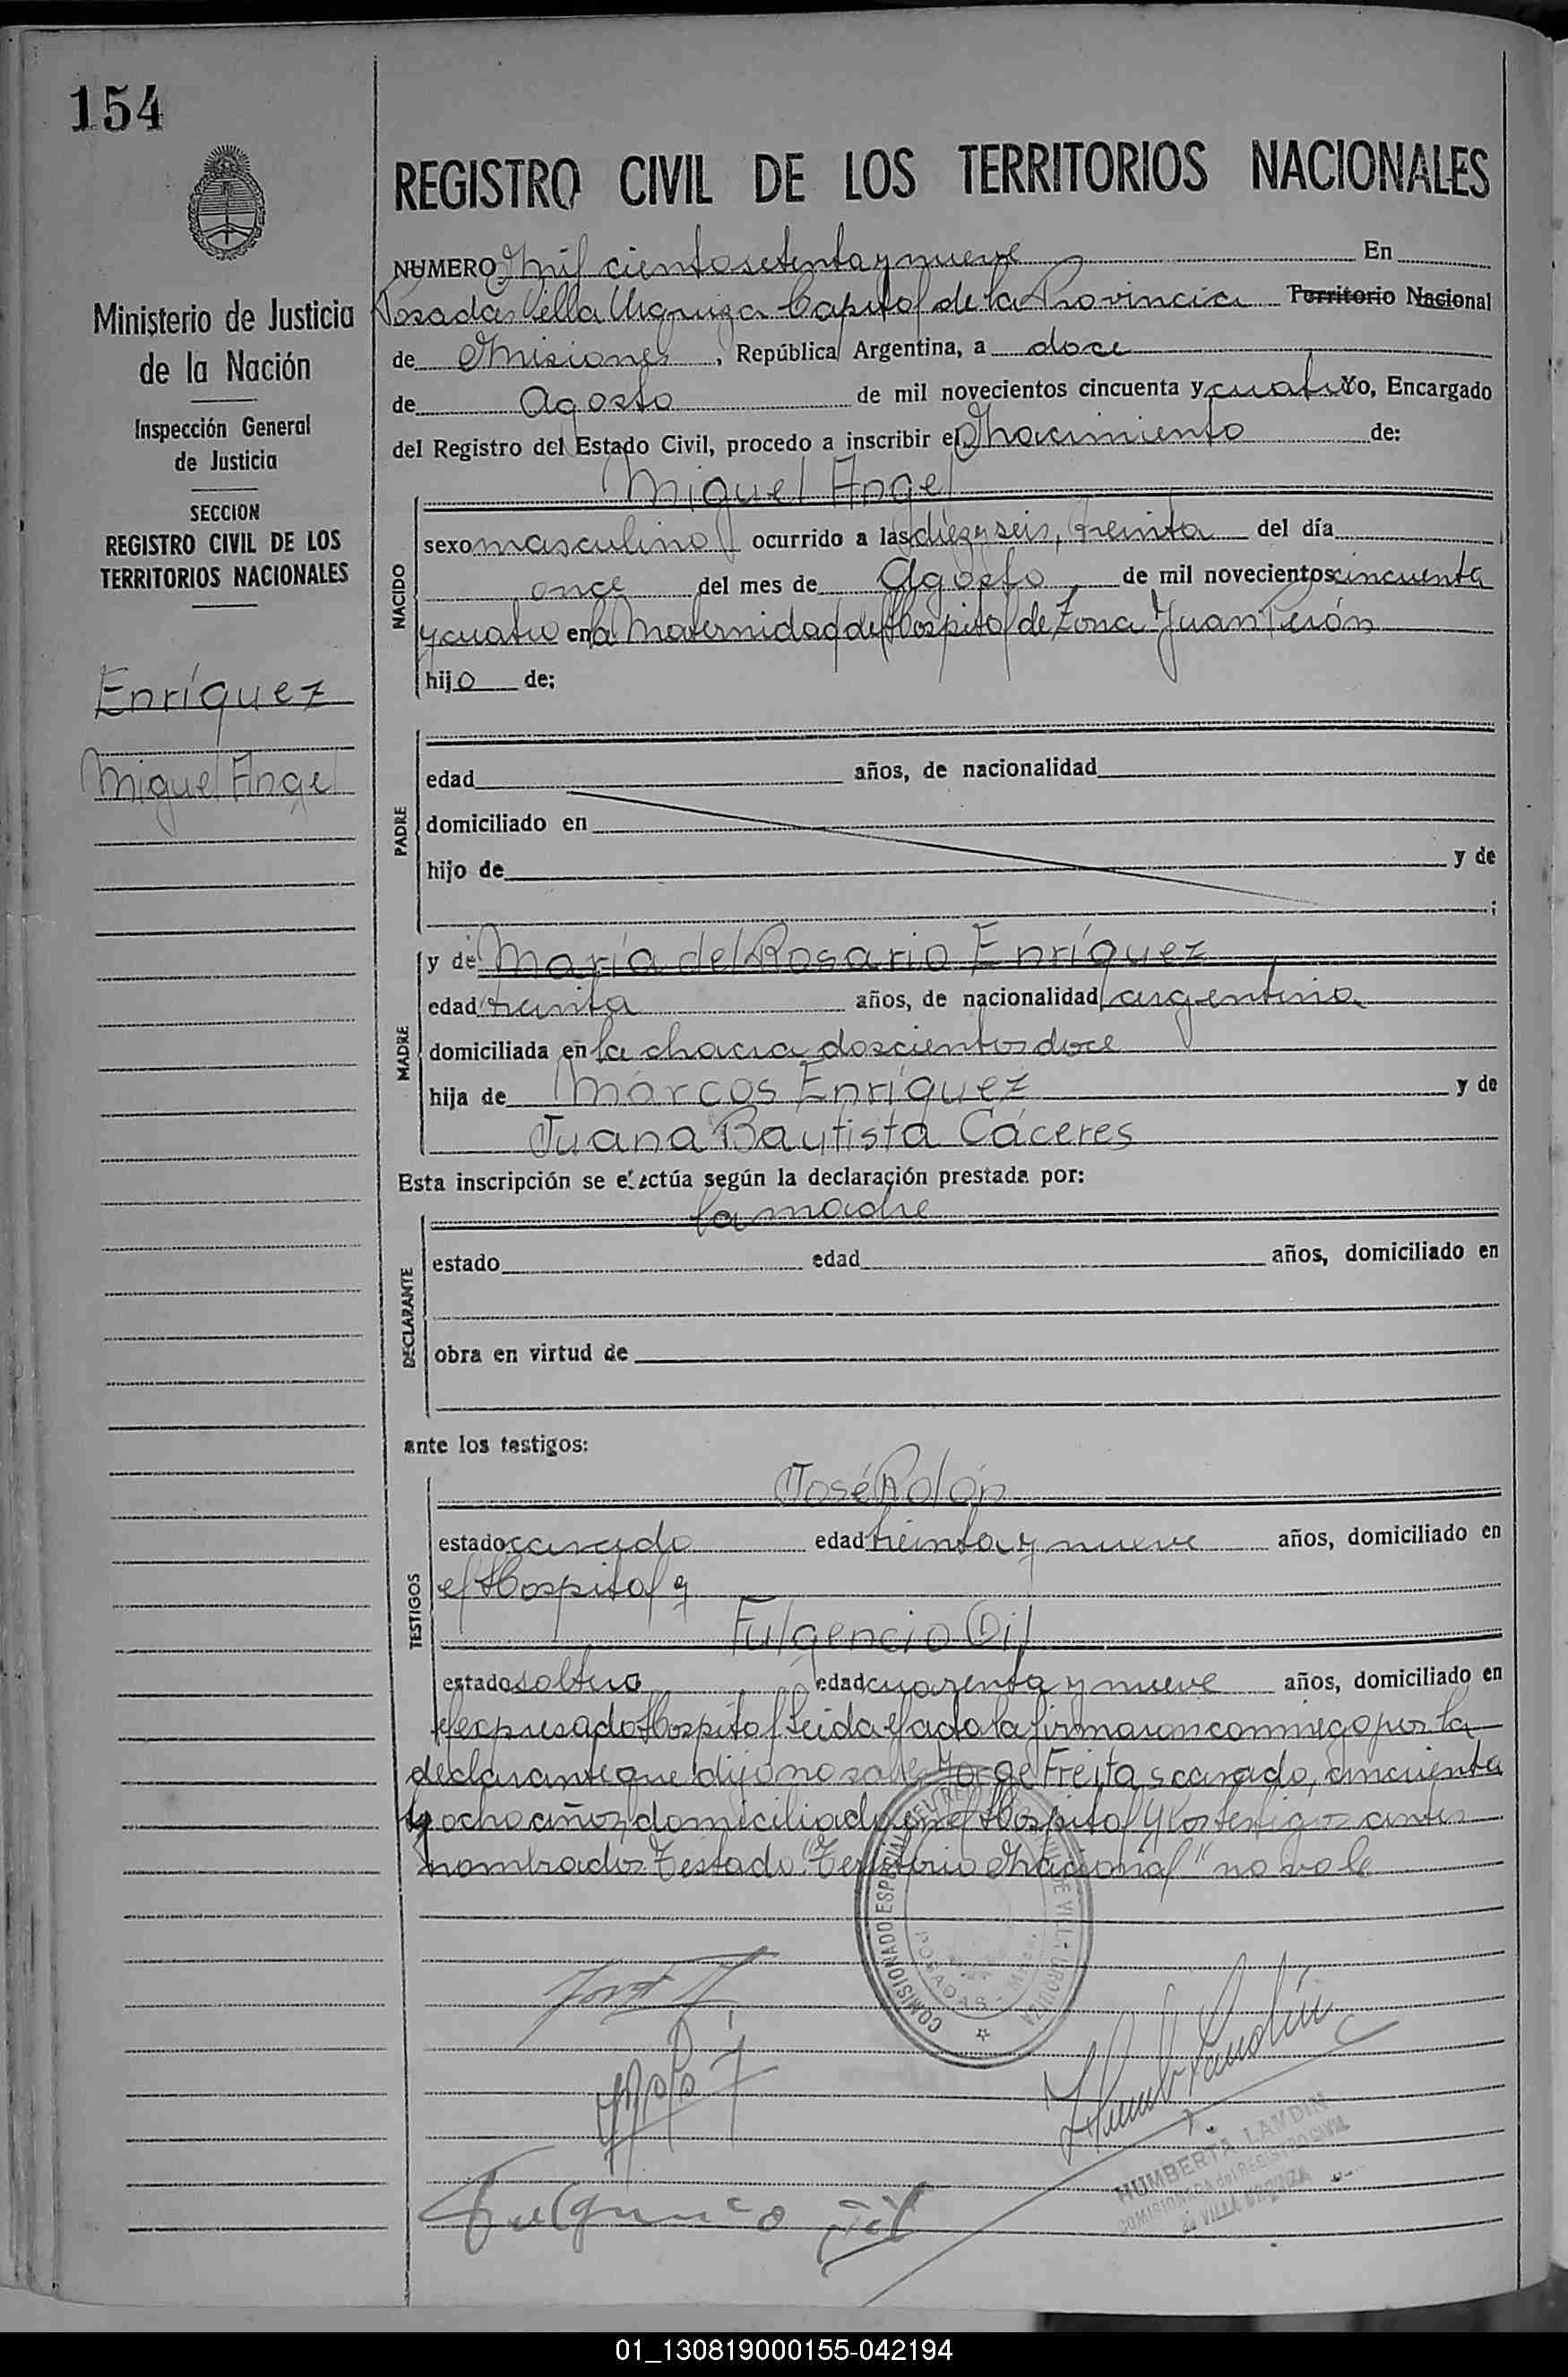 154
REGISTRO CIVIL DE LOS TERRITORIOS NACIONALES
Ministerio de Justicia
de la Nación
Inspección General
de Justicia
SECCION
REGISTRO CIVIL DE LOS
TERRITORIOS NACIONALES
Enríquez
Miguel Angel
NUMERO Mil ciento setenta y nueve En
Posadas Villa Urquiza Capital de la Provincia Territorio Nacional
de Misiones, República Argentina, a doce
de Agosto de mil novecientos cincuenta y cuatro Yo, Encargado
del Registro del Estado Civil, procedo a inscribir el Nacimiento de:
Miguel Angel
NACIDO
sexo masculino ocurrido a las diez y seis, treinta del día
once del mes de Agosto de mil novecientos cincuenta
y cuatro en la Maternidad del Hospital de Zona Juan Perón
hijo de:
PADRE
edad años, de nacionalidad
domiciliado en
hijo de y de
;
MADRE
y de María del Rosario Enríquez
edad treinta años, de nacionalidad argentina
domiciliada en la chacra doscientos doce
hija de Marcos Enríquez y de
Juana Bautista Cáceres
Esta inscripción se efectúa según la declaración prestada por:
la madre
DECLARANTE
estado edad años, domiciliado en
obra en virtud de
ante los testigos:
TESTIGOS
José Rolón
estado casado edad treinta y nueve años, domiciliado en
el Hospital y
Fulgencio Gil
estado soltero edad cuarenta y nueve años, domiciliado en
el expresado Hospital Leida el acta la firmaron conmigo por la
declarante que dijo no saber Jorge Freitas casado, cincuenta
y ocho años, domiciliado en el Hospital y los testigos antes
nombrados Testado: "Territorio Nacional" no vale
COMISIONADO ESPECIAL DEL REG. CIVIL DE VILLA URQUIZA
POSADAS - Mnes.
Fulgencio Gil
HUMBERTA LANDIN
COMISIONADA del REGISTRO CIVIL
de VILLA URQUIZA
01_130819000155-042194